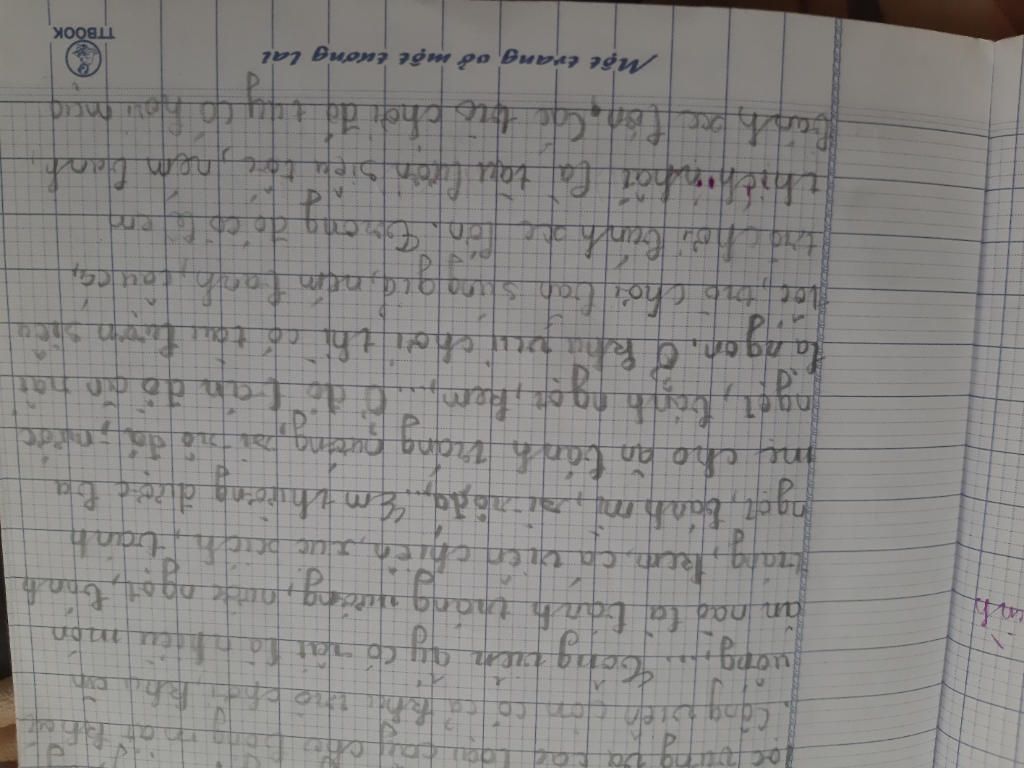 và các loài cây cho bóng mát
Công viên còn có cả khu trò chơi, khu ăn
uống,... Công viên ấy có rất là nhiều món
ăn nào là bánh tráng nướng, nước ngọt, bánh
tráng, kem, cá viên chiên, xúc xích, bánh
ngọt, bánh mì, si rô đá,... Em thường được ba
mẹ cho ăn bánh tráng nướng, si rô đá, nước
ngọt, bánh ngọt, kem,... Ở đó bán đồ ăn rất
là ngon. Ở khu vui chơi thì có tàu lượn siêu
tốc, trò chơi bắn súng giả, ném banh, câu cá,
trò chơi bánh xe lớn. Trong đó có lẽ em
thích nhất là tàu lượn siêu tốc, ném banh,
bánh xe lớn. Các trò chơi đó tuy có hơi mạo
Một trang vở một tương lai
TTBOOK